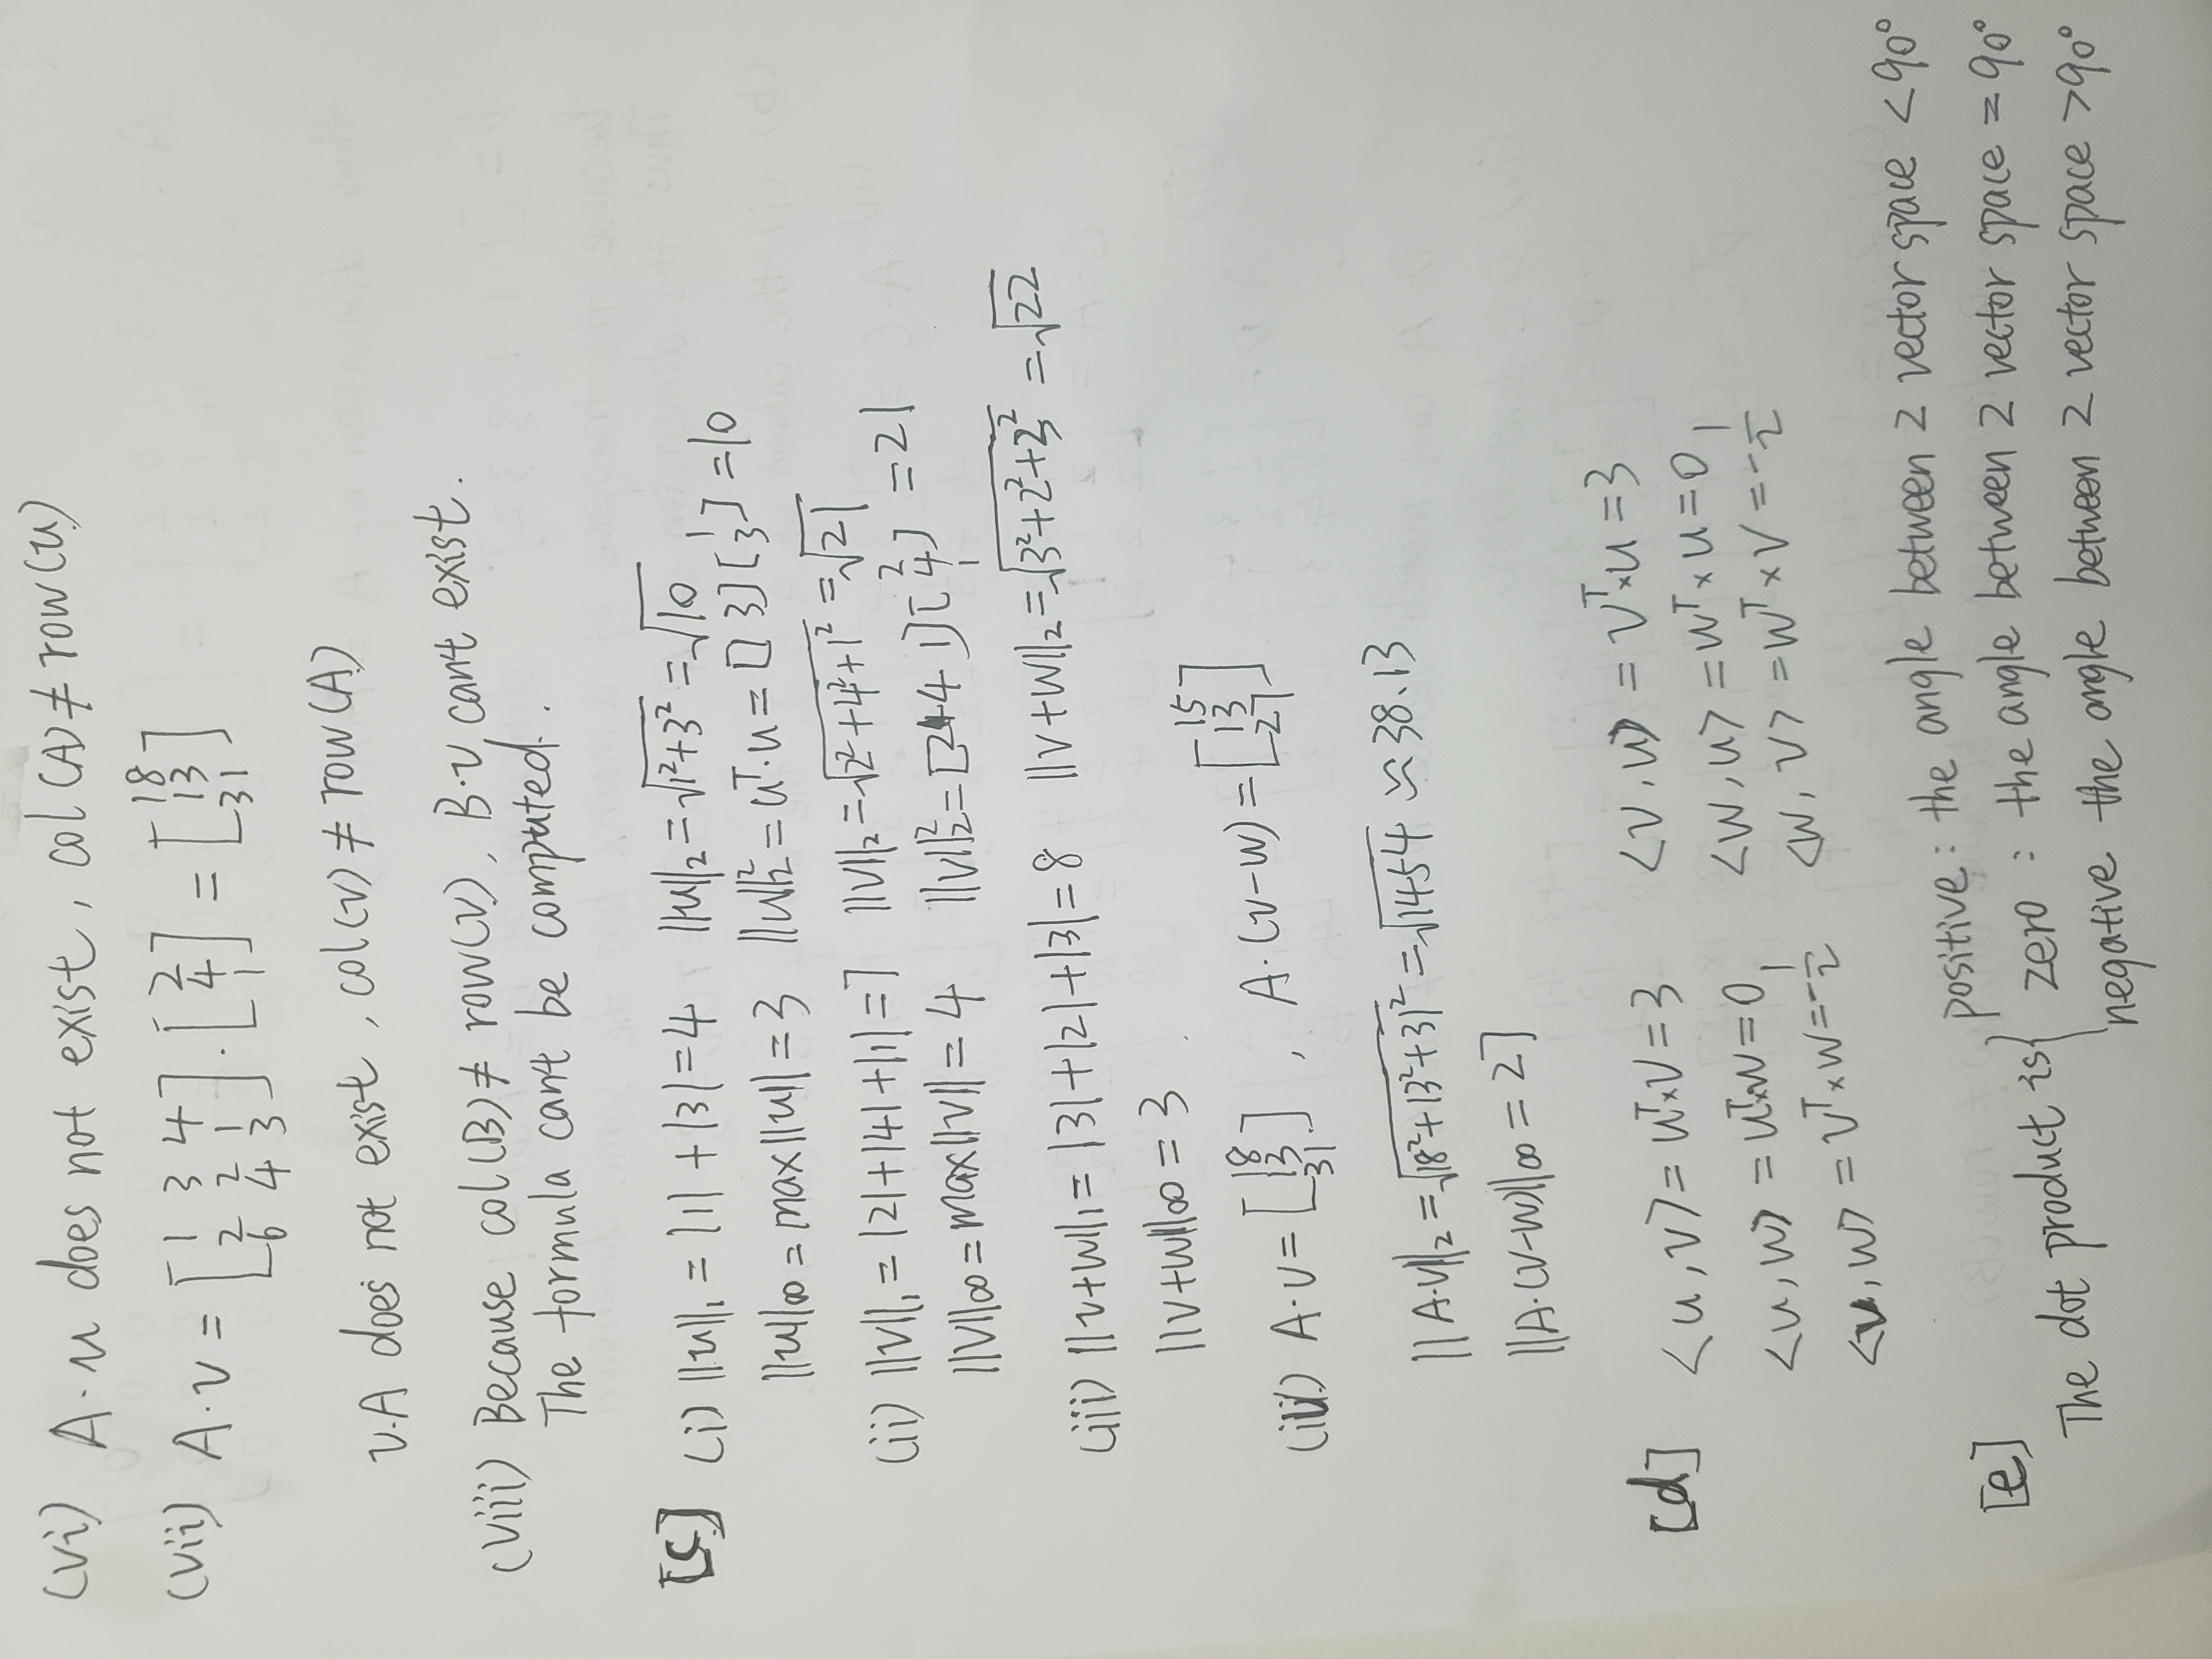 (vi) A·u does not exist, col(A)≠row(u)
(vii) A·v = [1 3 4; 2 2 1; 6 4 3] · [2; 4; 1] = [18; 13; 31]
v.A does not exist, col(v)≠row(A)
(viii) Because col(B)≠ row(v), B·v can't exist.
The formula can't be computed.
[c] (i) ||u||₁ = |1| + |3| = 4 ||u||₂ = √(1²+3²) = √10
||u||∞ = max||u|| = 3 ||u||₂² = uᵀ·u = [1 3][1; 3] = 10
(ii) ||v||₁ = |2|+|4|+|1| = 7 ||v||₂ = √(2²+4²+1²) = √21
||v||∞ = max||v|| = 4 ||v||₂² = [2 4 1][2; 4; 1] = 21
(iii) ||v+w||₁ = |3|+|2|+|3| = 8 ||v+w||₂ = √(3²+2²+3²) = √22
||v+w||∞ = 3
(iv) A·v = [18; 13; 31], A·(v-w) = [15; 13; 27]
||A·v||₂ = √(18²+13²+31²) = √1454 ≈ 38.13
||A·(v-w)||∞ = 27
[d] <u,v> = uᵀ×v = 3 <v,u> = vᵀ×u = 3
<u,w> = uᵀ×w = 0 <w,u> = wᵀ×u = 0
<v,w> = vᵀ×w = -1/2 <w,v> = wᵀ×v = -1/2
[e] The dot product is { positive : the angle between 2 vector space < 90°
zero : the angle between 2 vector space = 90°
negative the angle between 2 vector space > 90°